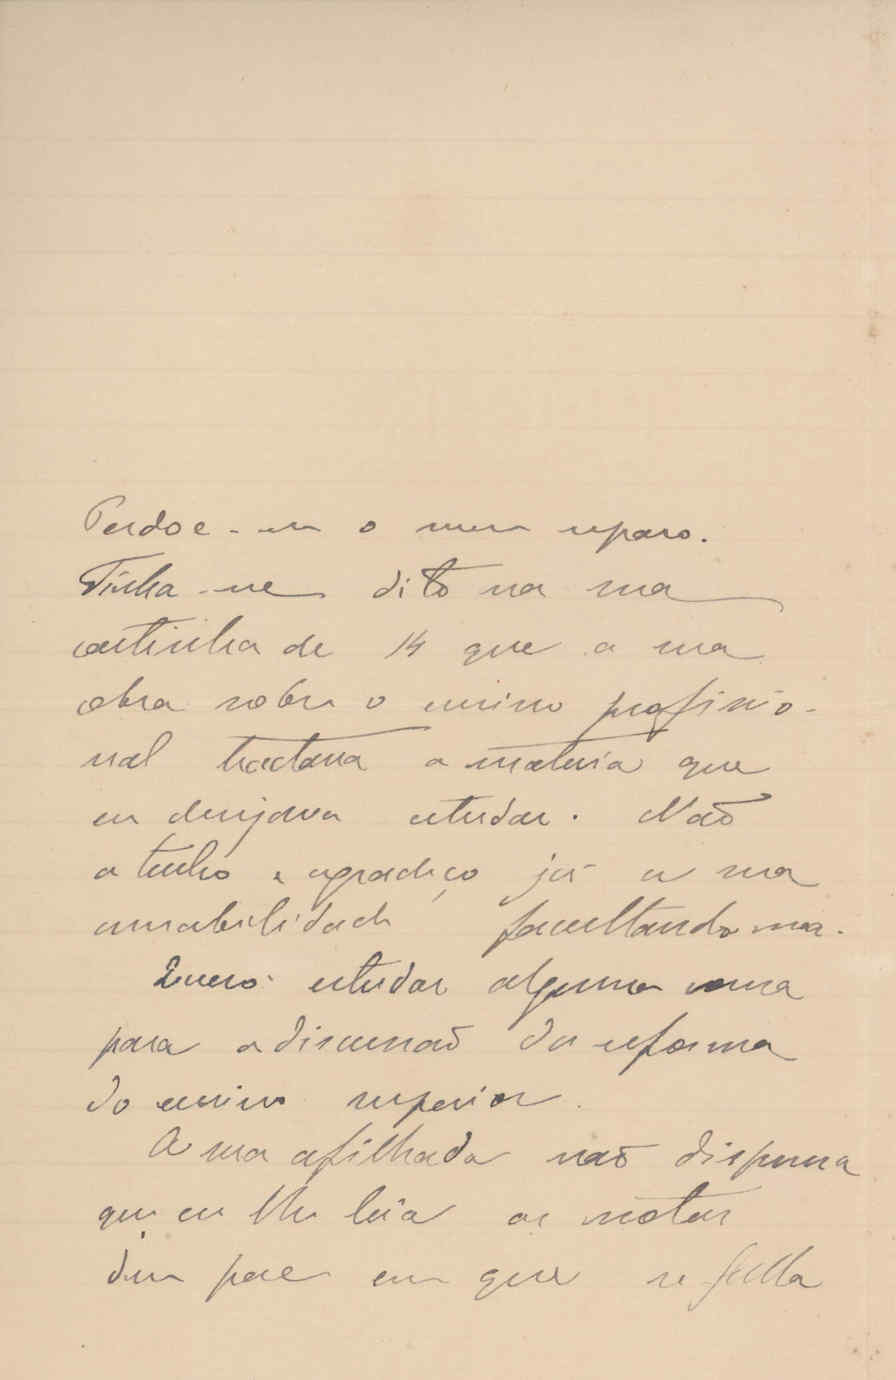 Perdoe-me o meu reparo.
Tinha-me dito na sua
cartinha de 14 que a sua
obra sobre o ensino profissio-
nal tractava a materia que
eu desejava estudar. Não
a tenho e agradeço já a sua
amabilidade, facultando-ma.
Quero estudar alguma cousa
para a discussão da reforma
do ensino superior.
A sua afilhada não dispensa
que eu lhe leia as notas
seu pae em que se falla